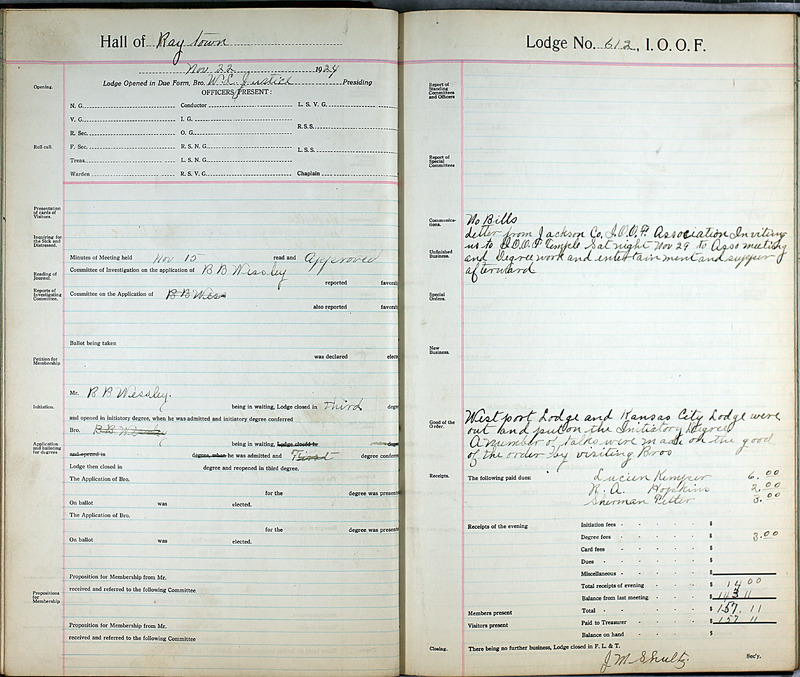 Hall of Ray town
Nov 22 1924
Opening.
Lodge Opened in Due Form, Bro. W. E. Justice Presiding
OFFICERS PRESENT:
N. G. Conductor L. S. V. G.
V. G. I. G.
R. S. S.
R. Sec. O. G.
Roll call.
F. Sec. R. S. N. G.
L. S. S.
Treas. L. S. N. G.
Warden R. S. V. G. Chaplain
Presentation of cards of Visitors.
Inquiring for the Sick and Distressed.
Minutes of Meeting held Nov 15 read and approved
Reading of Journal.
Committee of Investigation on the application of B B Wessley
reported favora
Reports of Investigating Committee.
Committee on the Application of B B Wes
also reported favora
Ballot being taken
was declared elect
Petition for Membership
Mr. B B Wessley.
Initiation.
being in waiting, Lodge closed in Third degr
and opened in initiatory degree, when he was admitted and initiatory degree conferred
Bro.
Application and balloting for degrees
being in waiting, Lodge closed in degr
and opened in degree, when he was admitted and Third degree conferr
Lodge then closed in degree and reopened in third degree.
The Application of Bro.
for the degree was present
On ballot was elected.
The Application of Bro.
for the degree was present
On ballot was elected.
Proposition for Membership from Mr.
Propositions for Membership
received and referred to the following Committee
Proposition for Membership from Mr.
received and referred to the following Committee
Lodge No. 612, I. O. O. F.
Report of Standing Committees and Officers
Report of Special Committees
Communications.
No Bills
Letter from Jackson Co, I.O.O.F Association Inviting
us to I.O.O.F Temple Sat night Nov 29 to Asso meeting
Unfinished Business.
and Degree work and entertainment and supper
afterward
Special Orders.
New Business.
Good of the Order.
West port Lodge and Kansas City Lodge were
out and put on the Initiatory Degree
A number of talks were made on the good
of the order by visiting Bros
Receipts.
The following paid dues: Lucien Kemper 6.00
R. A. Hopkins 2.00
Sherman 3.00
Receipts of the evening Initiation fees $
Degree fees $ 3.00
Card fees $
Dues $
Miscellaneous $
Total receipts of evening $ 14 00
Balance from last meeting $ 143 11
Members present Total $ 157.11
Visitors present Paid to Treasurer $ 157 11
Balance on hand $
Closing.
There being no further business, Lodge closed in F. L. & T.
J. M. Shultz. Sec'y.